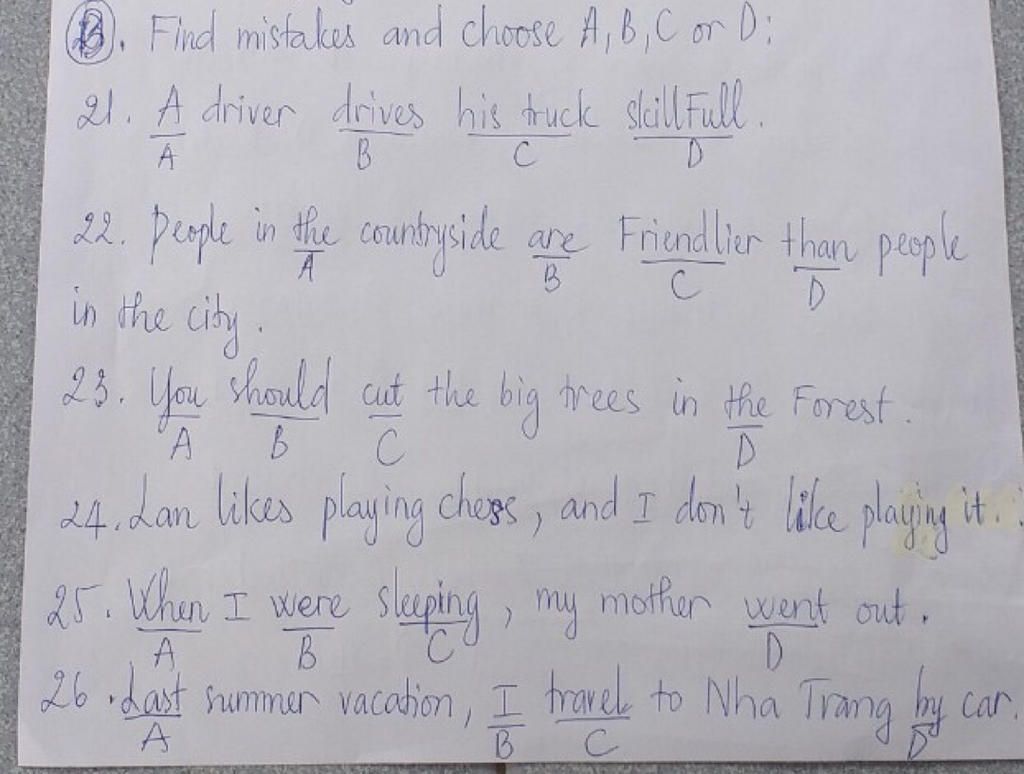 B. Find mistakes and choose A, B, C or D:
21. A driver drives his truck skillFull.
A B C D
22. People in the countryside are Friendlier than people
A B C D
in the city.
23. You should cut the big trees in the Forest.
A B C D
24. Lan likes playing chess, and I don't like playing it.
25. When I were sleeping, my mother went out.
A B C D
26. Last summer vacation, I travel to Nha Trang by car.
A B C D